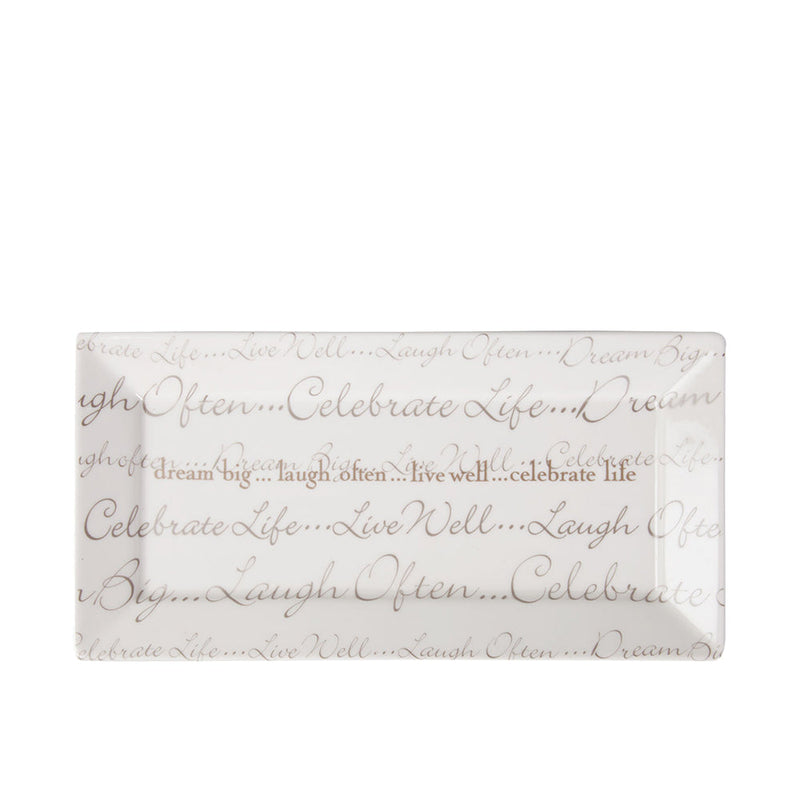 elebrate Life...Live Well...Laugh Often...Dream Big...
ugh Often...Celebrate Life...Dream
ughoften...Dream Big...Laugh Often...Live Well...Celebrate Life...
dream big... laugh often... live well...celebrate life
Celebrate Life...Live Well...Laugh Ofte
n Big...Laugh Often...Celebrate
elebrate Life...Live Well...Laugh Often...Dream Big